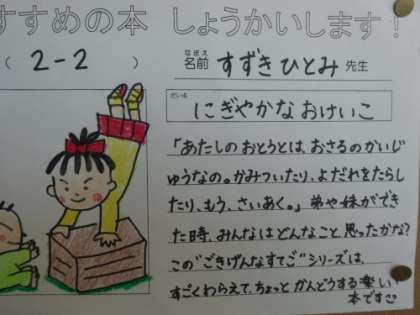 すすめの本 しょうかいします!
( 2-2 )
なまえ
名前 すずき ひとみ 先生
だいめい
にぎやかな おけいこ
「あたしのおとうとは、おさるのかいじ
ゅうなの。かみついたり、よだれをたらし
たり、もう、さいあく。」弟や妹ができ
た時、みんなはどんなこと、思ったかな?
この"ごきげんなすてご"シリーズは、
すごくわらえて、ちょっとかんどうする楽しい
本です